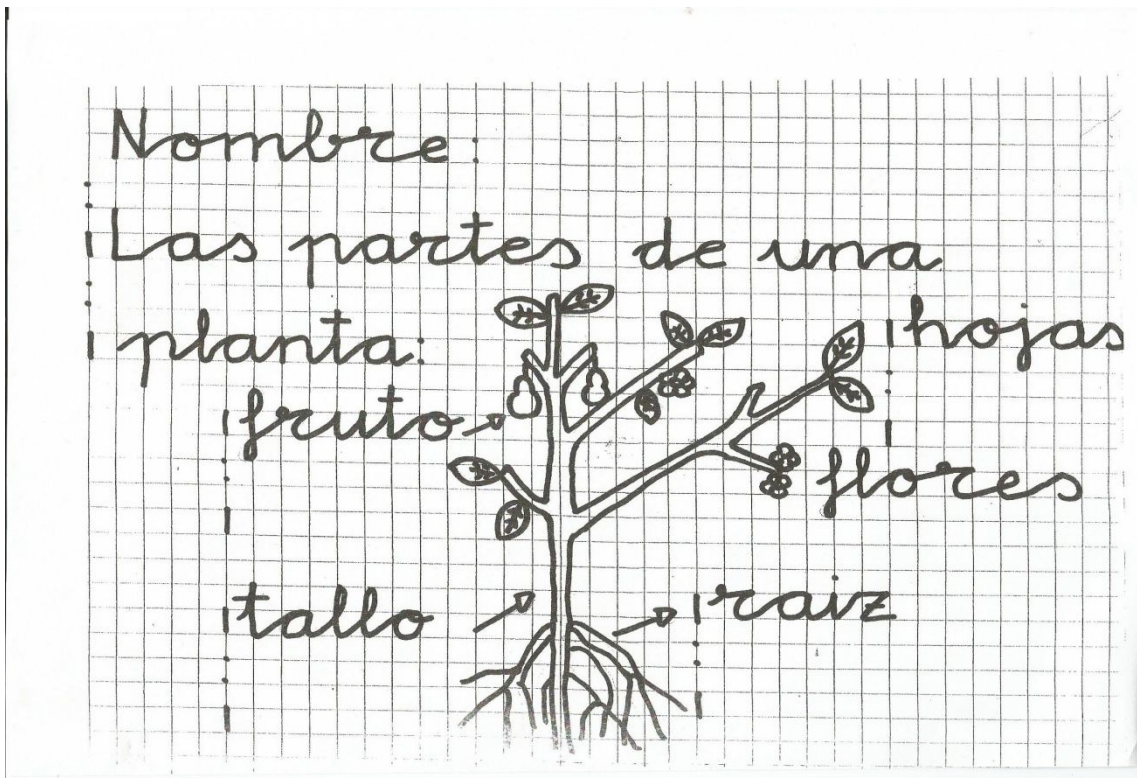 Nombre:
Las partes de una
planta:
hojas
fruto
flores
tallo
raiz